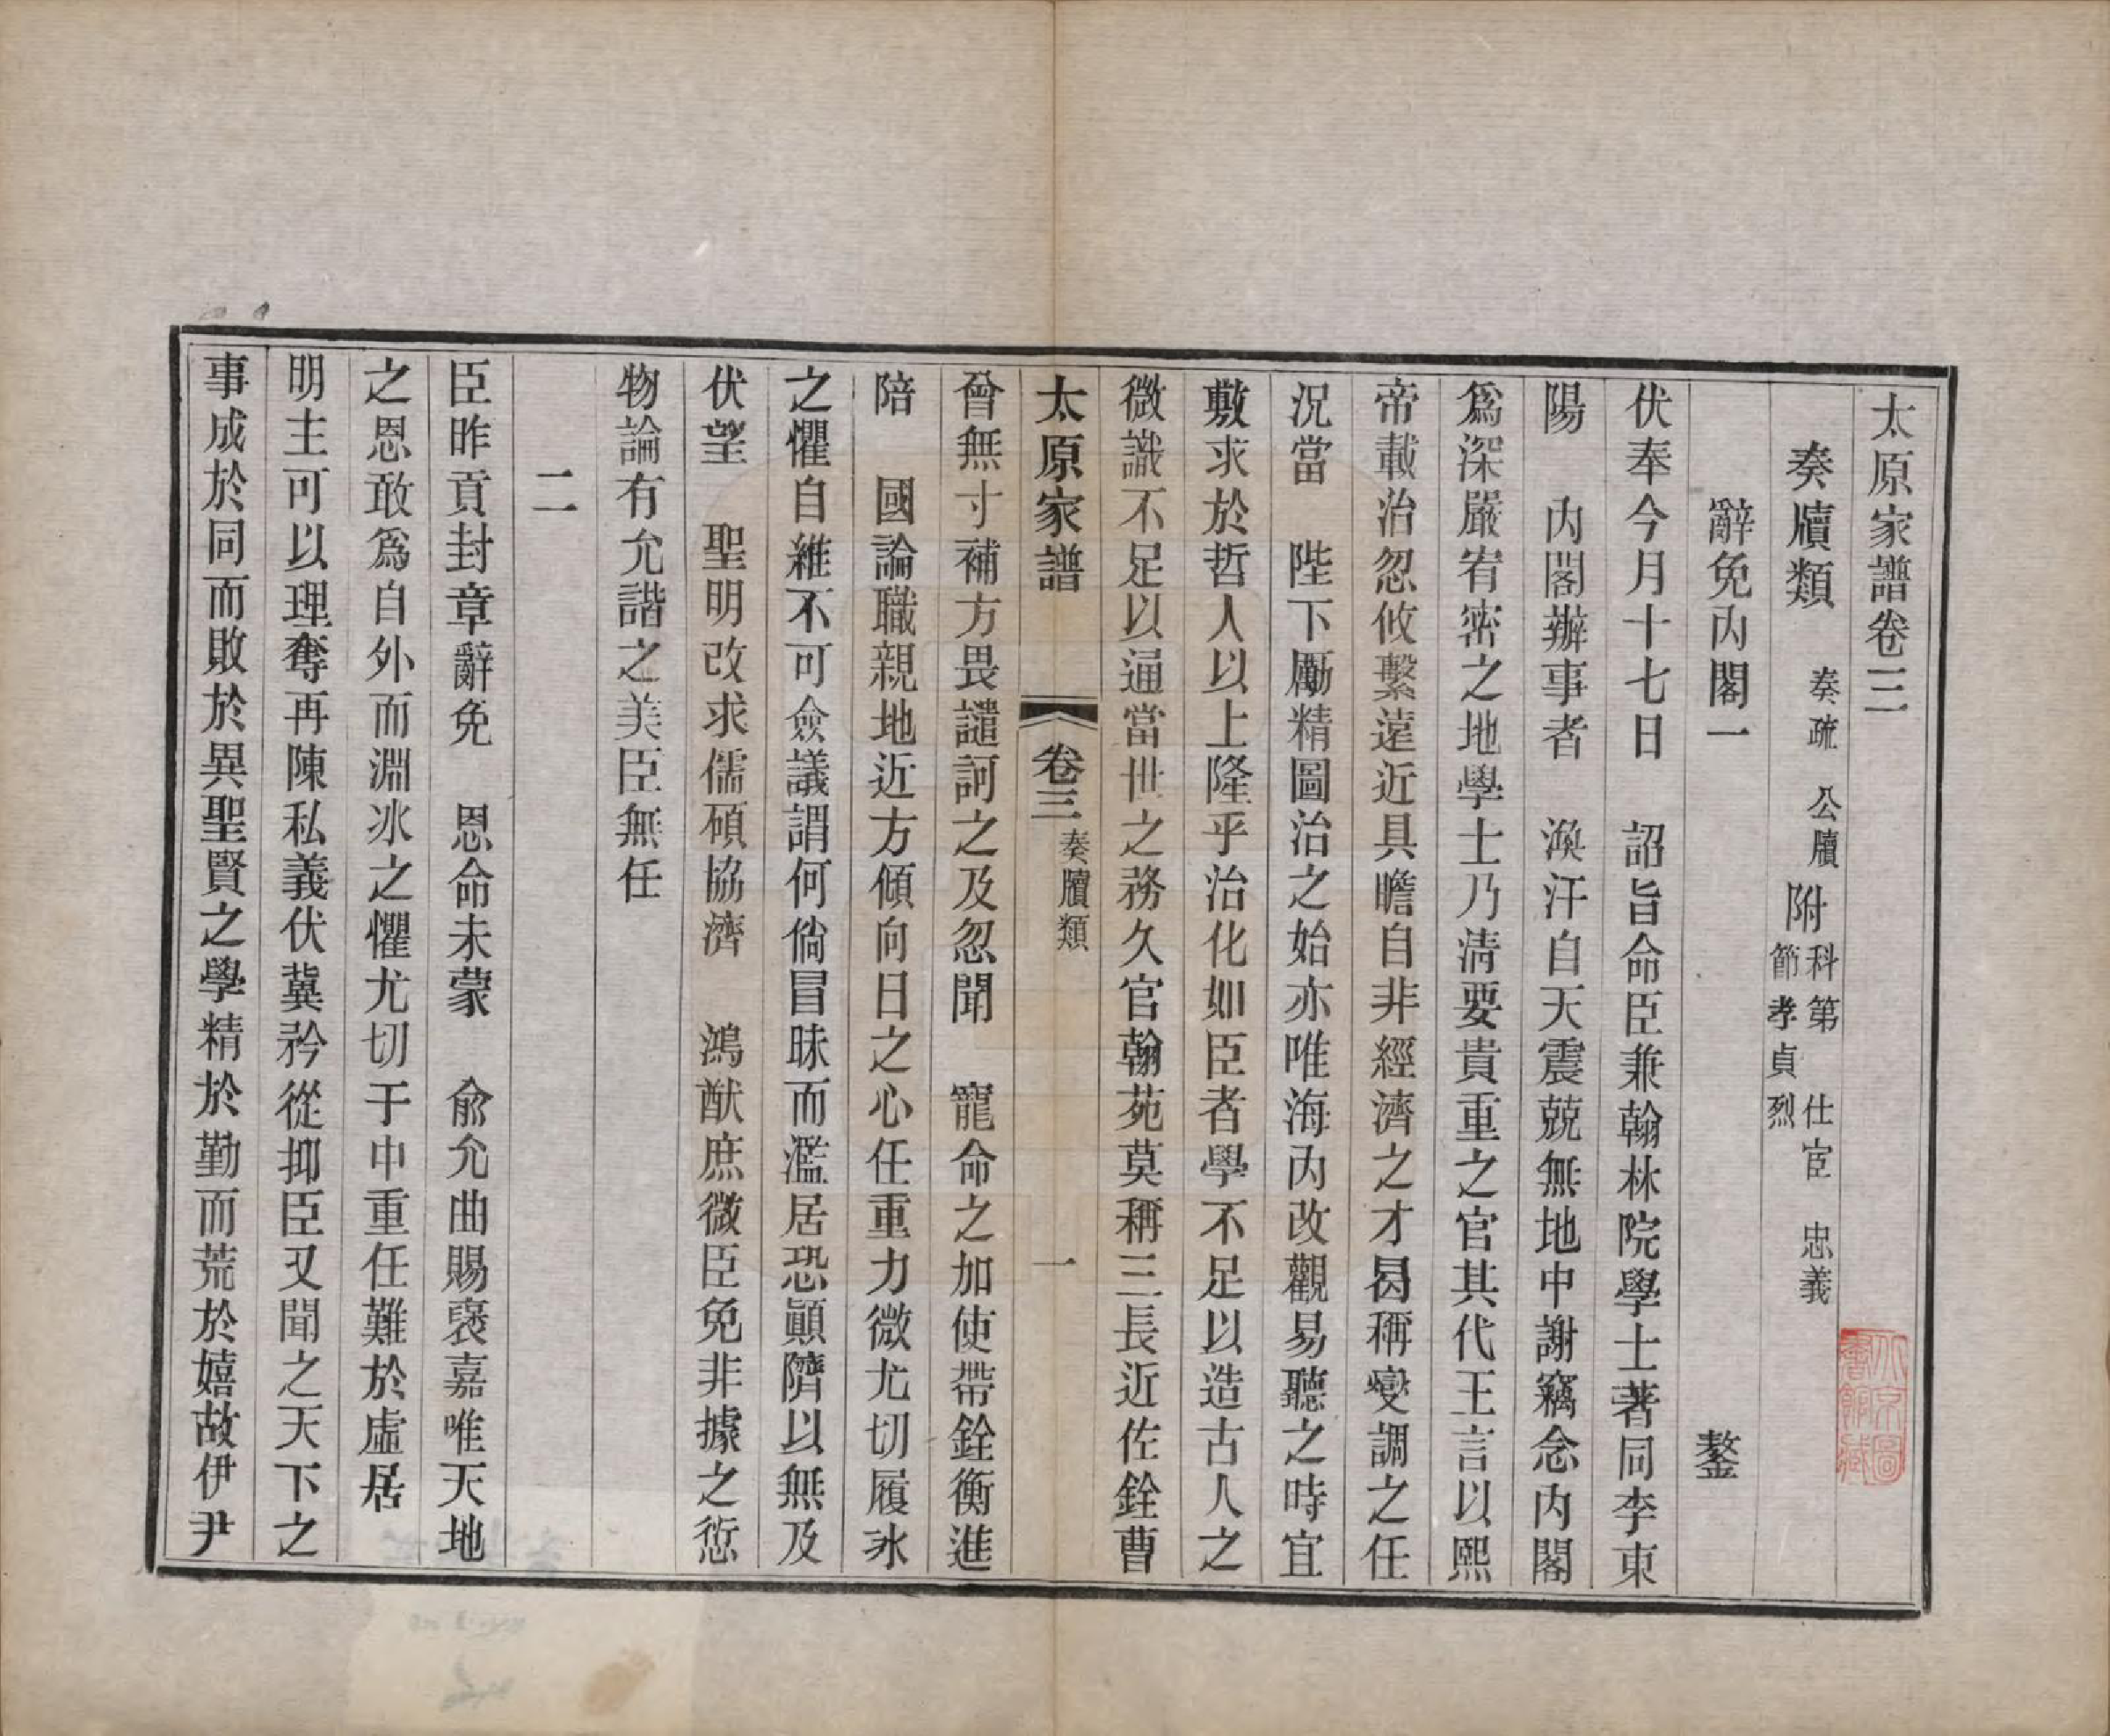 太原家譜卷三
奏牘類　奏疏　公牘　附　科第　仕宦　忠義　節孝貞烈
辭免內閣一　鏊
伏奉今月十七日　詔旨命臣兼翰林院學士著同李東
陽　內閣辦事者　渙汗自天震兢無地中謝竊念內閣
爲深嚴宥密之地學士乃清要貴重之官其代王言以熙
帝載治忽攸繫遠近具瞻自非經濟之才曷稱變調之任
況當　陛下勵精圖治之始亦唯海內改觀易聽之時宜
敷求於哲人以上隆乎治化如臣者學不足以造古人之
微識不足以通當世之務久官翰苑莫稱三長近佐銓曹
太原家譜　卷三　奏牘類　一
曾無寸補方畏譴訶之及忽聞　寵命之加使帶銓衡進
陪　國論職親地近方傾向日之心任重力微尤切履氷
之懼自維不可僉議謂何倘冒昧而濫居恐顚隮以無及
伏望　聖明改求儒碩協濟　鴻猷庶微臣免非據之愆
物論有允諧之美臣無任
二
臣昨貢封章辭免　恩命未蒙　兪允曲賜褒嘉唯天地
之恩敢爲自外而淵氷之懼尤切于中重任難於虛居
明主可以理奪再陳私義伏冀矜從抑臣又聞之天下之
事成於同而敗於異聖賢之學精於勤而荒於嬉故伊尹